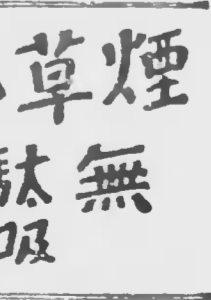 煙草
無駄
吸